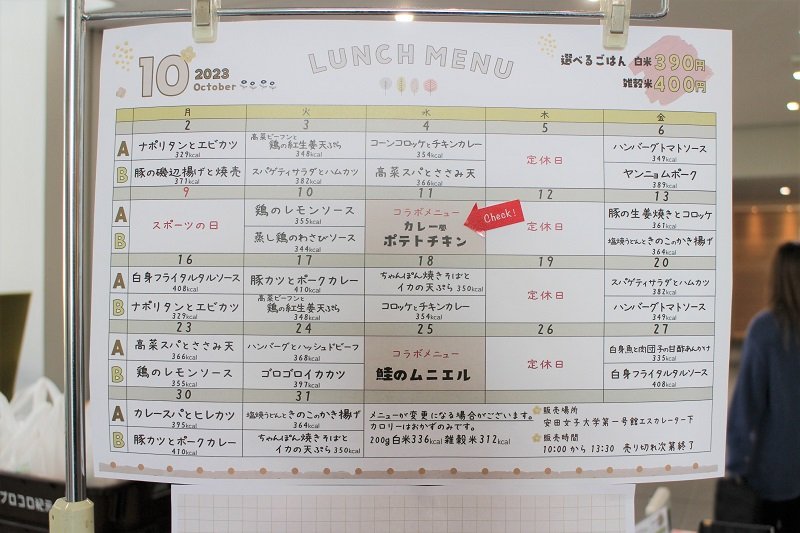 LUNCH MENU
10 2023
October
選べるごはん 白米 390円
雑穀米 400円
月 火 水 木 金
2 3 4 5 6
A ナポリタンとエビカツ 329kcal
高菜ビーフンと鶏の紅生姜天ぷら 348kcal
コーンコロッケとチキンカレー 354kcal
定休日
ハンバーグトマトソース 349kcal
B 豚の磯辺揚げと焼売 371kcal
スパゲティサラダとハムカツ 382kcal
高菜スパとささみ天 366kcal
ヤンニョムポーク 389kcal
9 10 11 12 13
A
B
スポーツの日
鶏のレモンソース 355kcal
蒸し鶏のわさびソース 344kcal
コラボメニュー
カレー風
ポテトチキン
Check!
定休日
豚の生姜焼きとコロッケ 361kcal
塩焼うどんときのこのかき揚げ 364kcal
16 17 18 19 20
A 白身フライタルタルソース 408kcal
豚カツとポークカレー 410kcal
ちゃんぽん焼きそばと
イカの天ぷら 350kcal
定休日
スパゲティサラダとハムカツ 382kcal
B ナポリタンとエビカツ 329kcal
高菜ビーフンと鶏の紅生姜天ぷら 348kcal
コロッケとチキンカレー 354kcal
ハンバーグトマトソース 349kcal
23 24 25 26 27
A 高菜スパとささみ天 366kcal
ハンバーグとハッシュドビーフ 368kcal
コラボメニュー
鮭のムニエル
定休日
白身魚と肉団子の甘酢あんかけ 335kcal
B 鶏のレモンソース 355kcal
ゴロゴロイカカツ 397kcal
白身フライタルタルソース 408kcal
30 31
A カレースパとヒレカツ 395kcal
塩焼うどんときのこのかき揚げ 364kcal
B 豚カツとポークカレー 410kcal
ちゃんぽん焼きそばと
イカの天ぷら 350kcal
メニューが変更になる場合がございます。
カロリーはおかずのみです。
200g白米336kcal 雑穀米312kcal
販売場所
安田女子大学第一号館エスカレーター下
販売時間
10:00 から 13:30 売り切れ次第終了